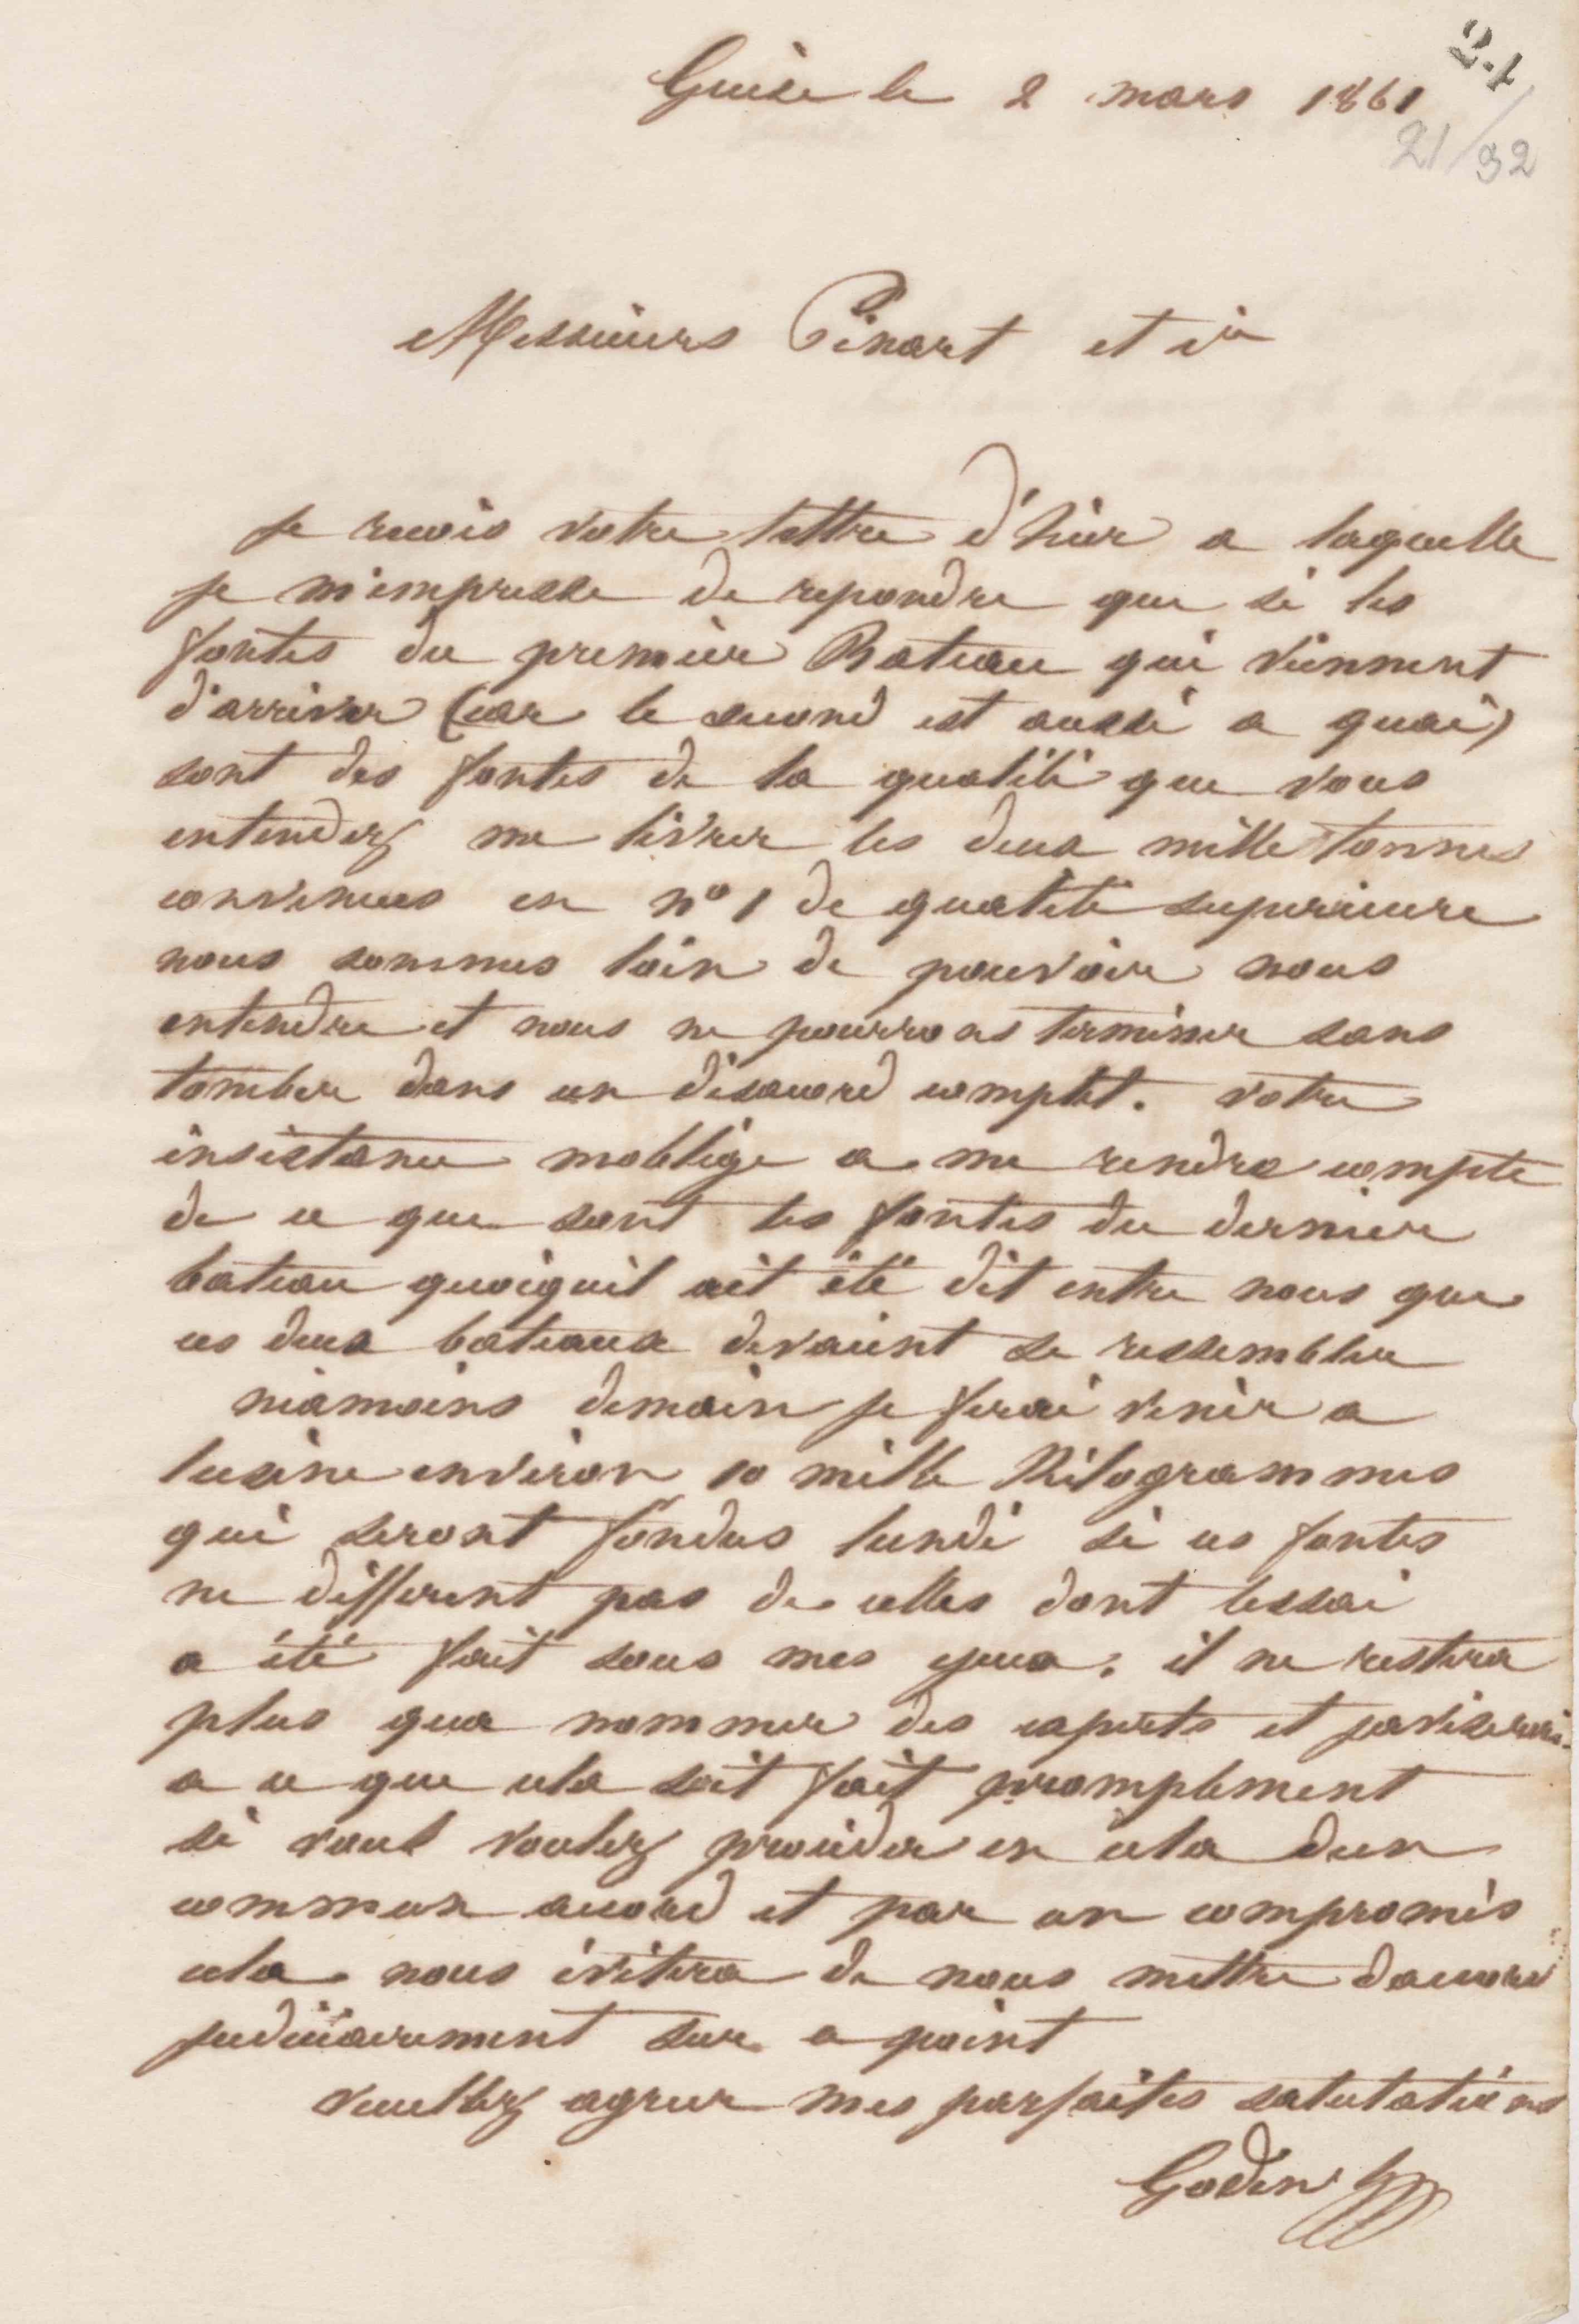 Guise le 2 mars 1861
21
21/32
Messieurs Pinart et cie
je recois votre lettre d'hier a laquelle
je m'empresse de repondre que si les
fontes du premier Bateau qui viennent
d'arriver (car le second est aussi a quai)
sont des fontes de la qualité que vous
entendez me livrer les deux mille tonnes
convenues en n° 1 de qualité superieure
nous sommes loin de pouvoir nous
entendre et nous ne pourrons terminer sans
tomber dans un désacord complet. votre
insistance moblige a me rendre compte
de ce que sont les fontes du dernier
bateau quoiquil ait été dit entre nous que
ces deux bateaux devaient se ressembler
néamoins demain je ferai venir a
lusine environ 10 mille Kilogrammes
qui seront fondus lundi si ces fontes
ne different pas de celles dont lessai
a été fait sous mes yeux. il ne restera
plus qua nommer des experts et javiserai
a ce que cela soit fait promptement
si vous voulez proceder en cela dun
commun accord et par un compromis
cela nous évitera de nous mettre daccord
judiciairement sur ce point
veuillez agreer mes parfaites salutations
Godin